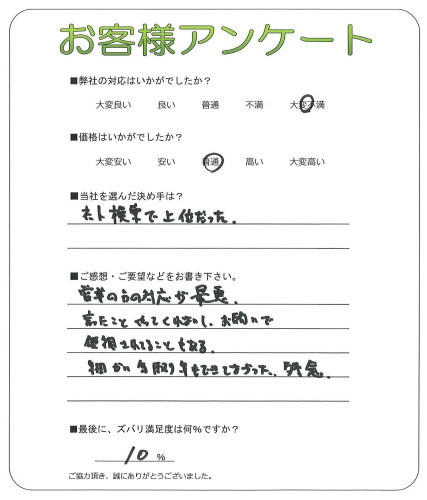 お客様アンケート
■弊社の対応はいかがでしたか？
大変良い 良い 普通 不満 大変不満
■価格はいかがでしたか？
大変安い 安い 普通 高い 大変高い
■当社を選んだ決め手は？
ネット検索で上位だった。
■ご感想・ご要望などをお書き下さい。
営業の方の対応が最悪。
言ったことやってくれないし、お願いで
されてることもある。
細かい
■最後に、ズバリ満足度は何%ですか？
10 %
ご協力頂き、誠にありがとうございました。